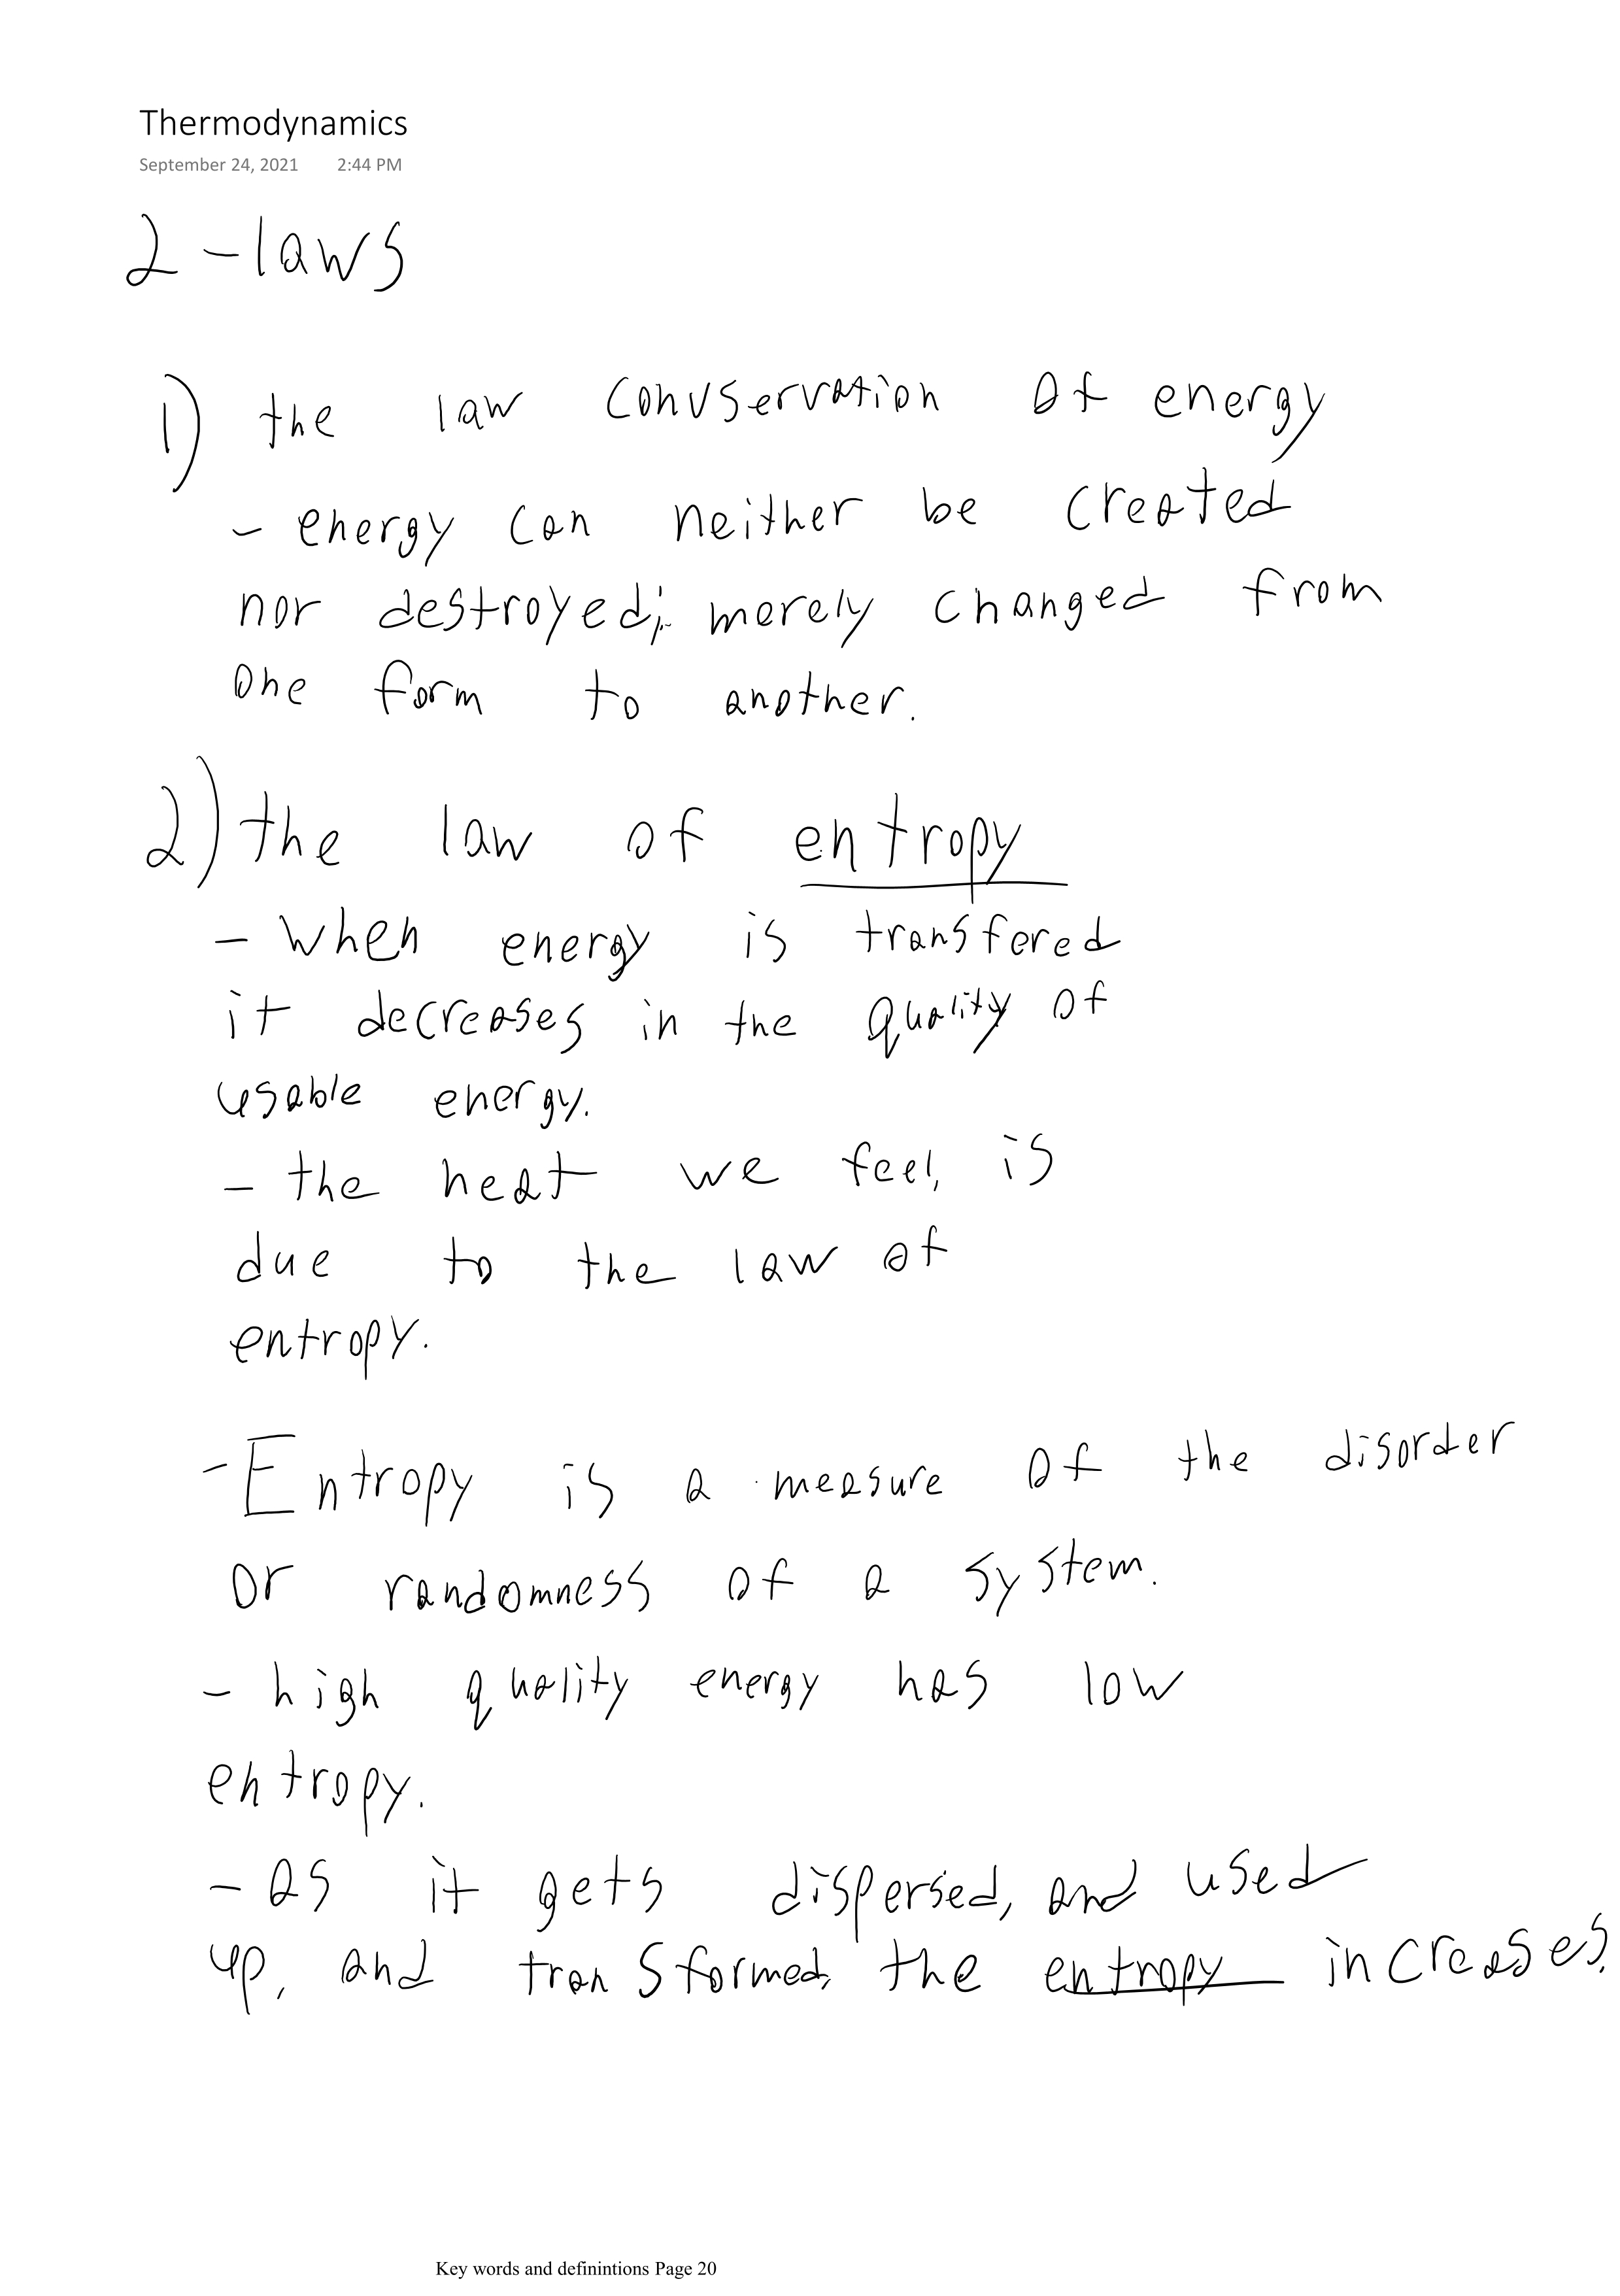 Thermodynamics
September 24, 2021 2:44 PM
2 - laws
1) the law convservation of energy
- energy can neither be created
nor destroyed; merely changed from
one form to another.
2) the law of entropy
- when energy is transfered
it decreases in the quality of
usable energy.
- the heat we feel, is
due to the law of
entropy.
- Entropy is a measure of the disorder
or randomness of a system.
- high quality energy has low
entropy.
- as it gets dispersed, and used
up, and transformed, the entropy increases.
Key words and definintions Page 20